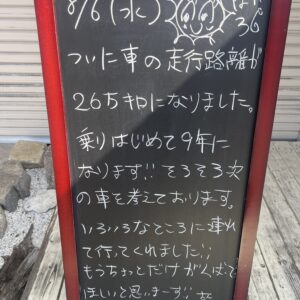 8/6(水)
36
ついに車の走行路離が
26万キロになりました。
乗りはじめて9年に
なります!! そろそろ次
の車を考えております。
いろいろなところに連れ
て行ってくれました!!
もうちょっとだけがんばって
ほしいと思いまーす!!